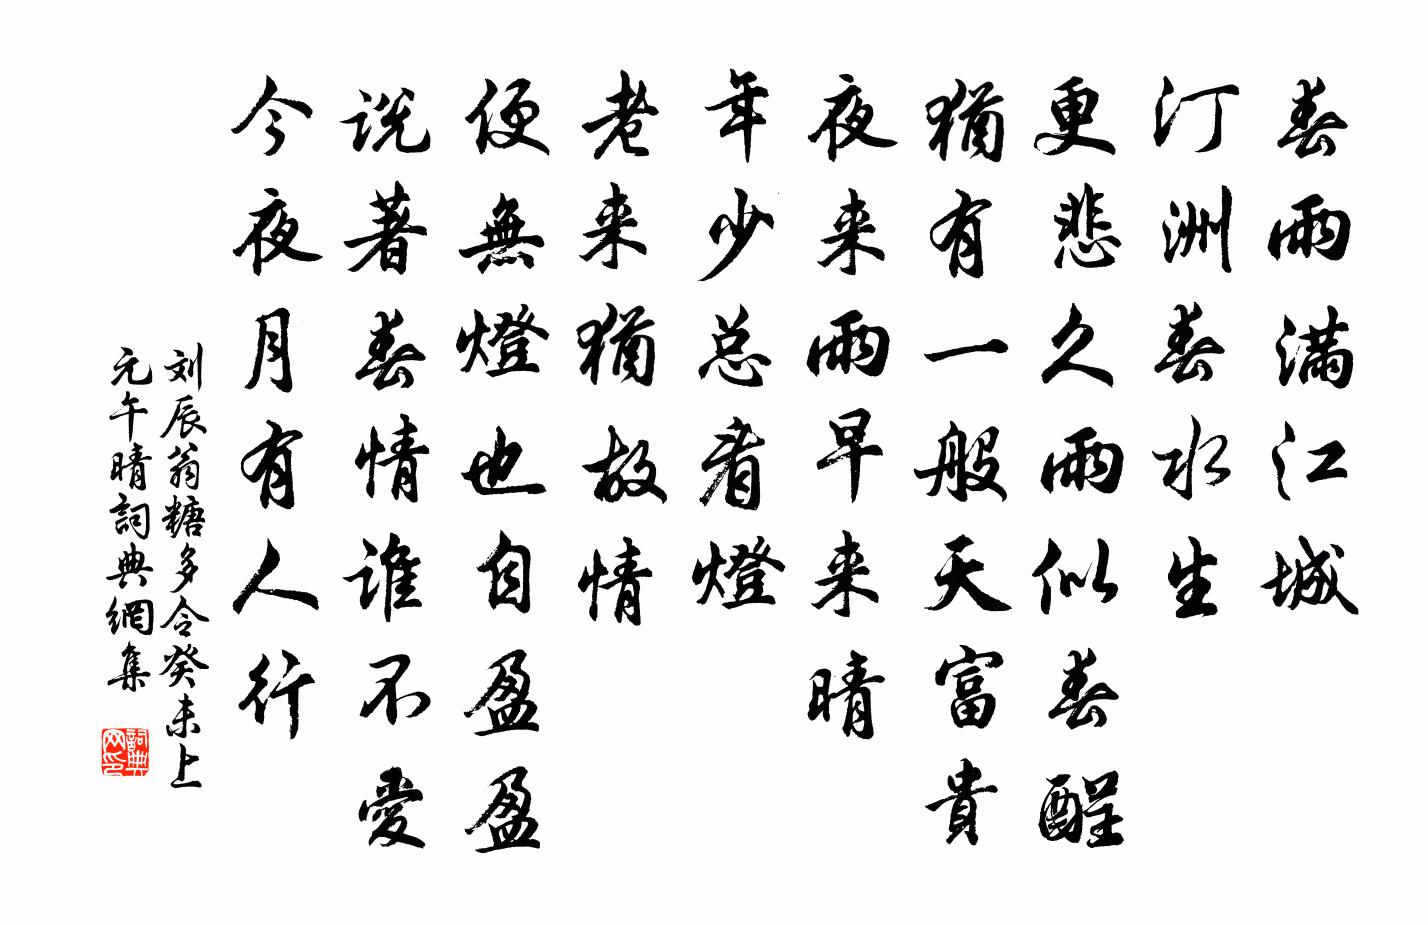 春雨滿江城
汀洲春水生
更悲久雨似春酲
猶有一般天富貴
夜来雨早来晴
年少总看燈
老来猶故情
便無燈也自盈盈
説著春情誰不愛
今夜月有人行
刘辰翁糖多令癸未上
元午晴詞典網集
詞典
网印